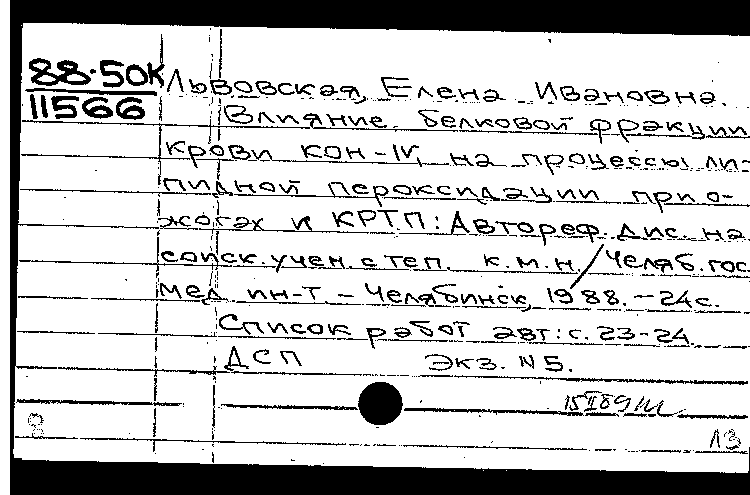 88-50К
11566
Львовская, Елена Ивановна.
Влияние белковой фракции
крови КОН-IV, на процессы ли-
пидной пероксидации при о-
жогах и КРТП: Автореф. дис. на
соиск. учен. степ. к.м.н./Челяб. гос.
мед. ин-т. - Челябинск, 1988. - 24 с.
Список работ авт: с. 23-24
ДСП Экз. N 5.
8
13